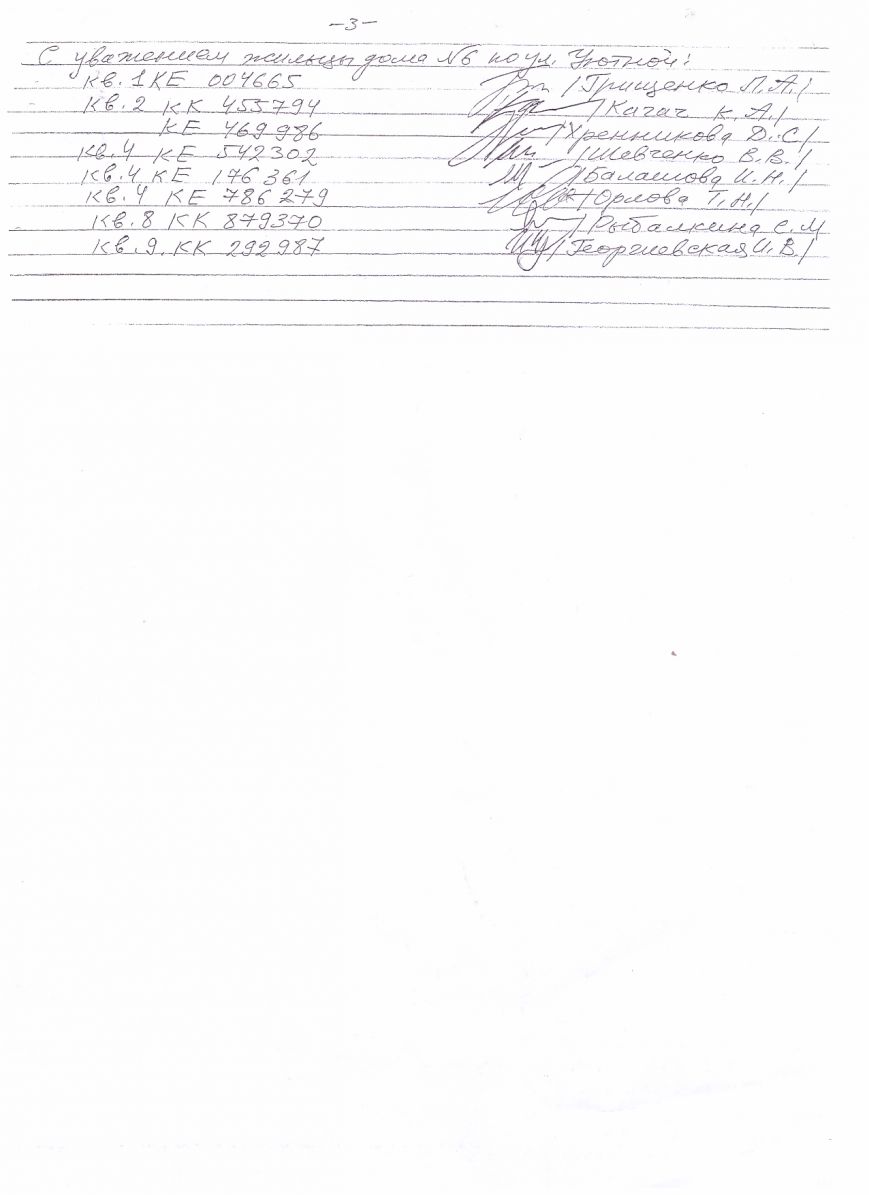 -3-
С уважением жильцы дома №6 по ул. Уютной:
кв. 1 КЕ 004665 /Грищенко Л.А./
кв. 2 КК 455794 /Качач К.А./
КЕ 469986 /Хренникова Д.С/
кв. 4 КЕ 542302 /Шевченко В.В./
кв. 4 КЕ 176361 /Балашова И.Н./
кв. 4 КЕ 786279 /Юрлова Т.Н./
кв. 8 КК 879370 /Рыбалкина С.М
кв. 9. КК 292987 /Георгиевская И.В./